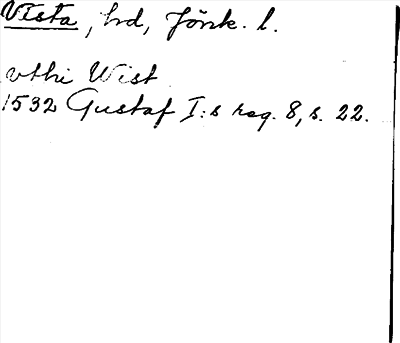 Vista, hd, Jönk. l.
vthi Wist
1532 Gustaf I:s reg. 8, s. 22.